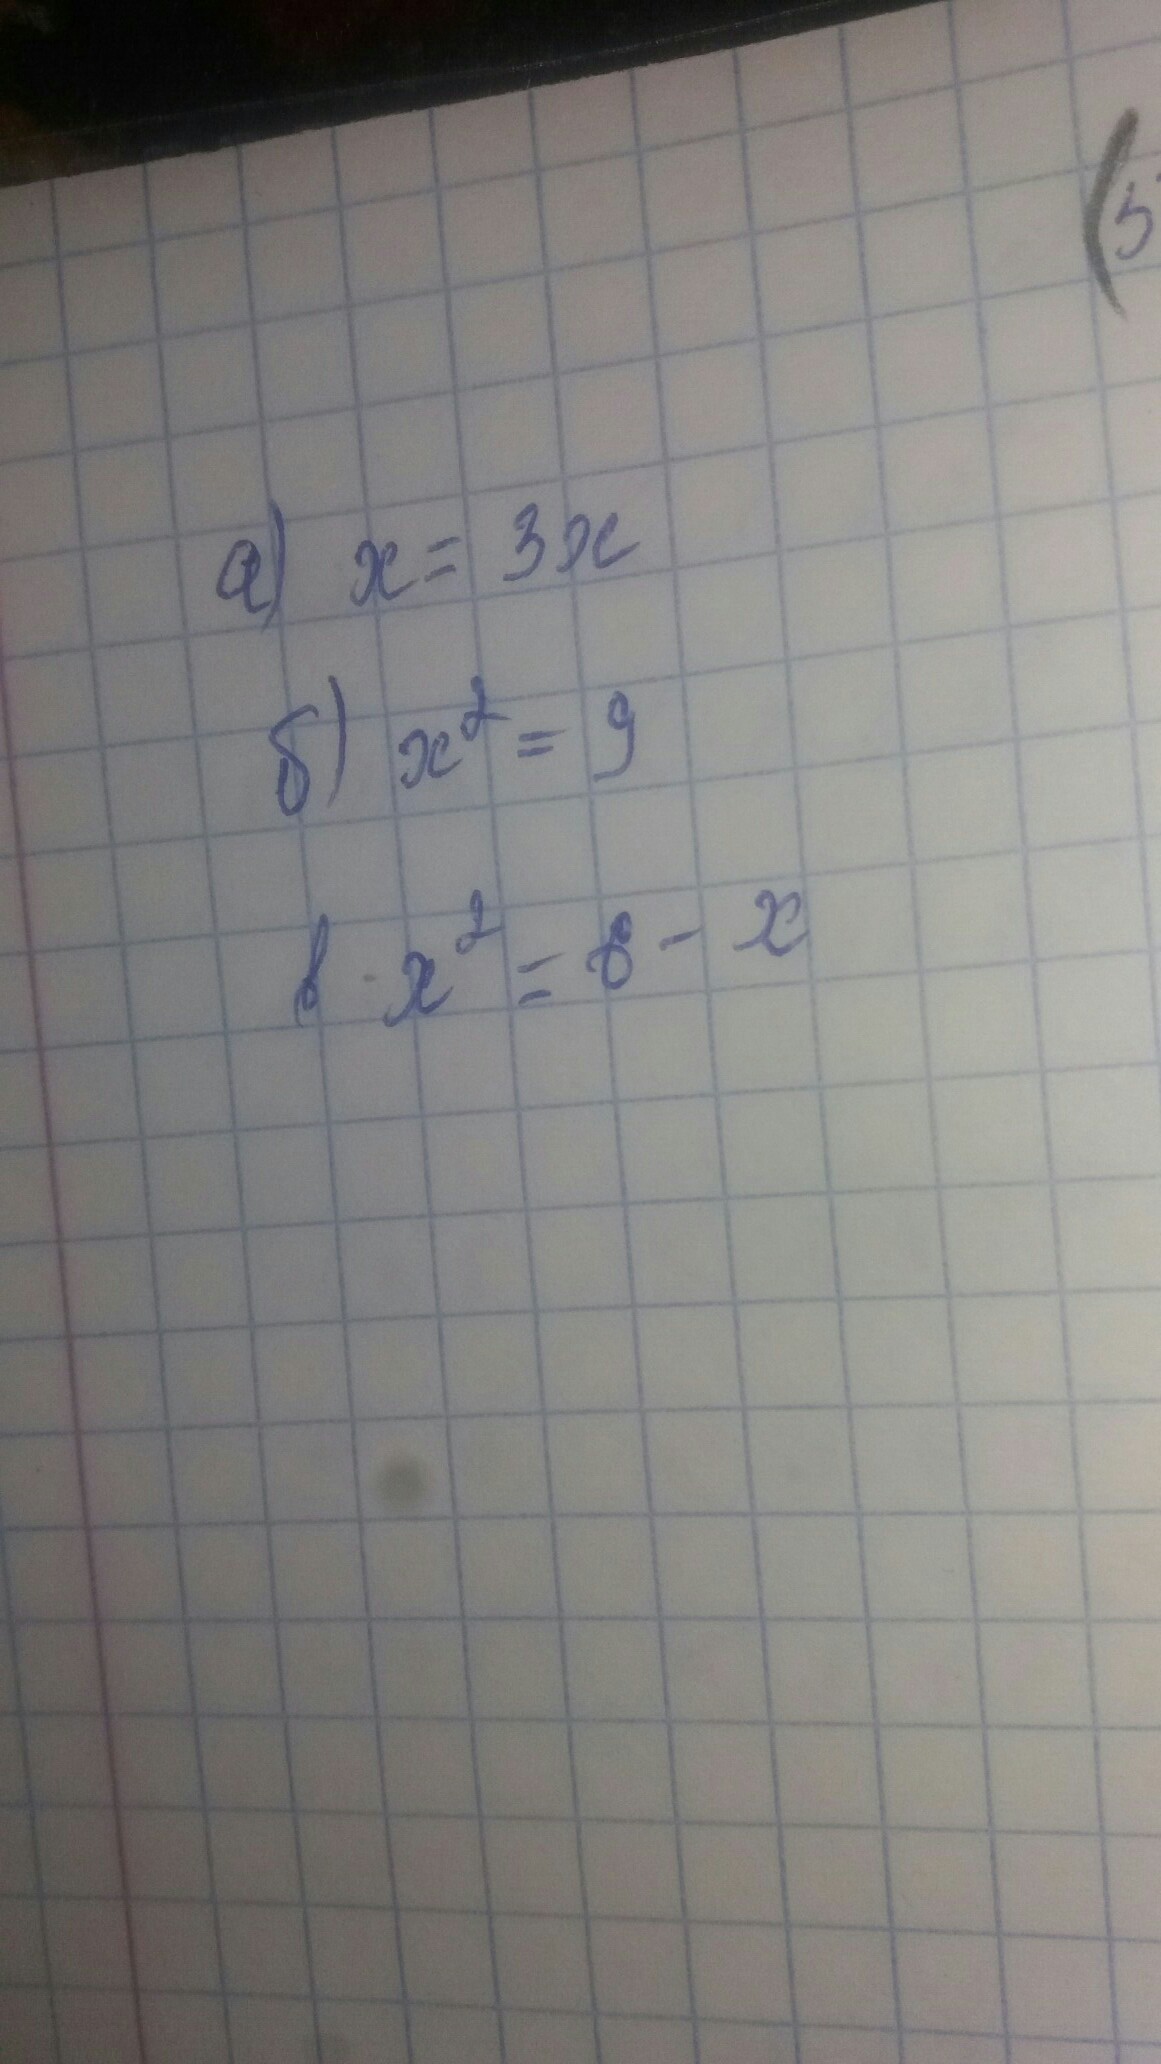 (5
а) x = 3x
б) x² = 9
в x² = 6 - x